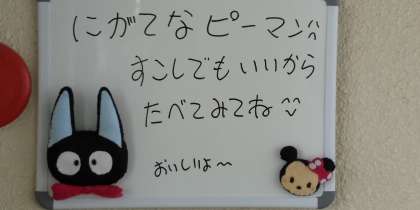 にがてなピーマン
すこしでもいいから
たべてみてね^^
おいしいよ〜